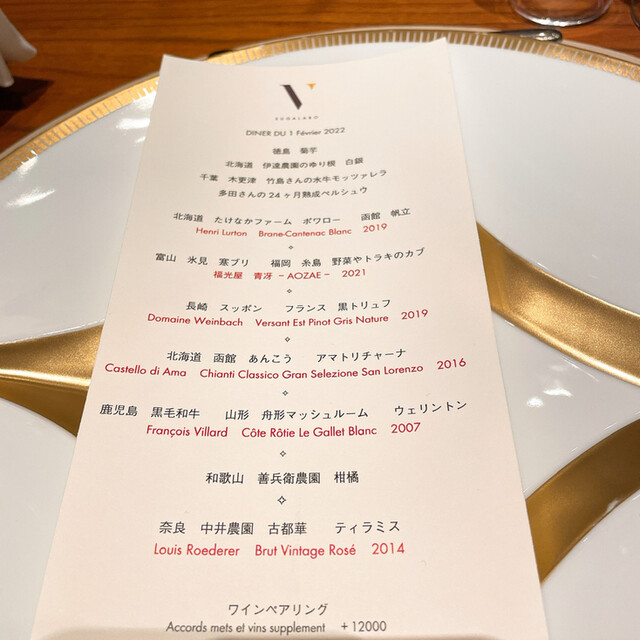 V
DINER DU 1 Février 2022
徳島 菊芋
北海道 伊達農園のゆり根 白銀
千葉 木更津 竹島さんの水牛モッツァレラ
多田さんの24ヶ月熟成ペルシュウ
北海道 たけなかファーム ポワロー 函館 帆立
Henri Lurton Brane-Cantenac Blanc 2019
富山 氷見 寒ブリ 福岡 糸島 野菜やトラキのカブ
福光屋 青冴 – AOZAE – 2021
長崎 スッポン フランス 黒トリュフ
Domaine Weinbach Versant Est Pinot Gris Nature 2019
北海道 函館 あんこう アマトリチャーナ
Castello di Ama Chianti Classico Gran Selezione San Lorenzo 2016
鹿児島 黒毛和牛 山形 舟形マッシュルーム ウェリントン
François Villard Côte Rôtie Le Gallet Blanc 2007
和歌山 善兵衛農園 柑橘
奈良 中井農園 古都華 ティラミス
Louis Roederer Brut Vintage Rosé 2014
ワインペアリング
Accords mets et vins supplement +12000